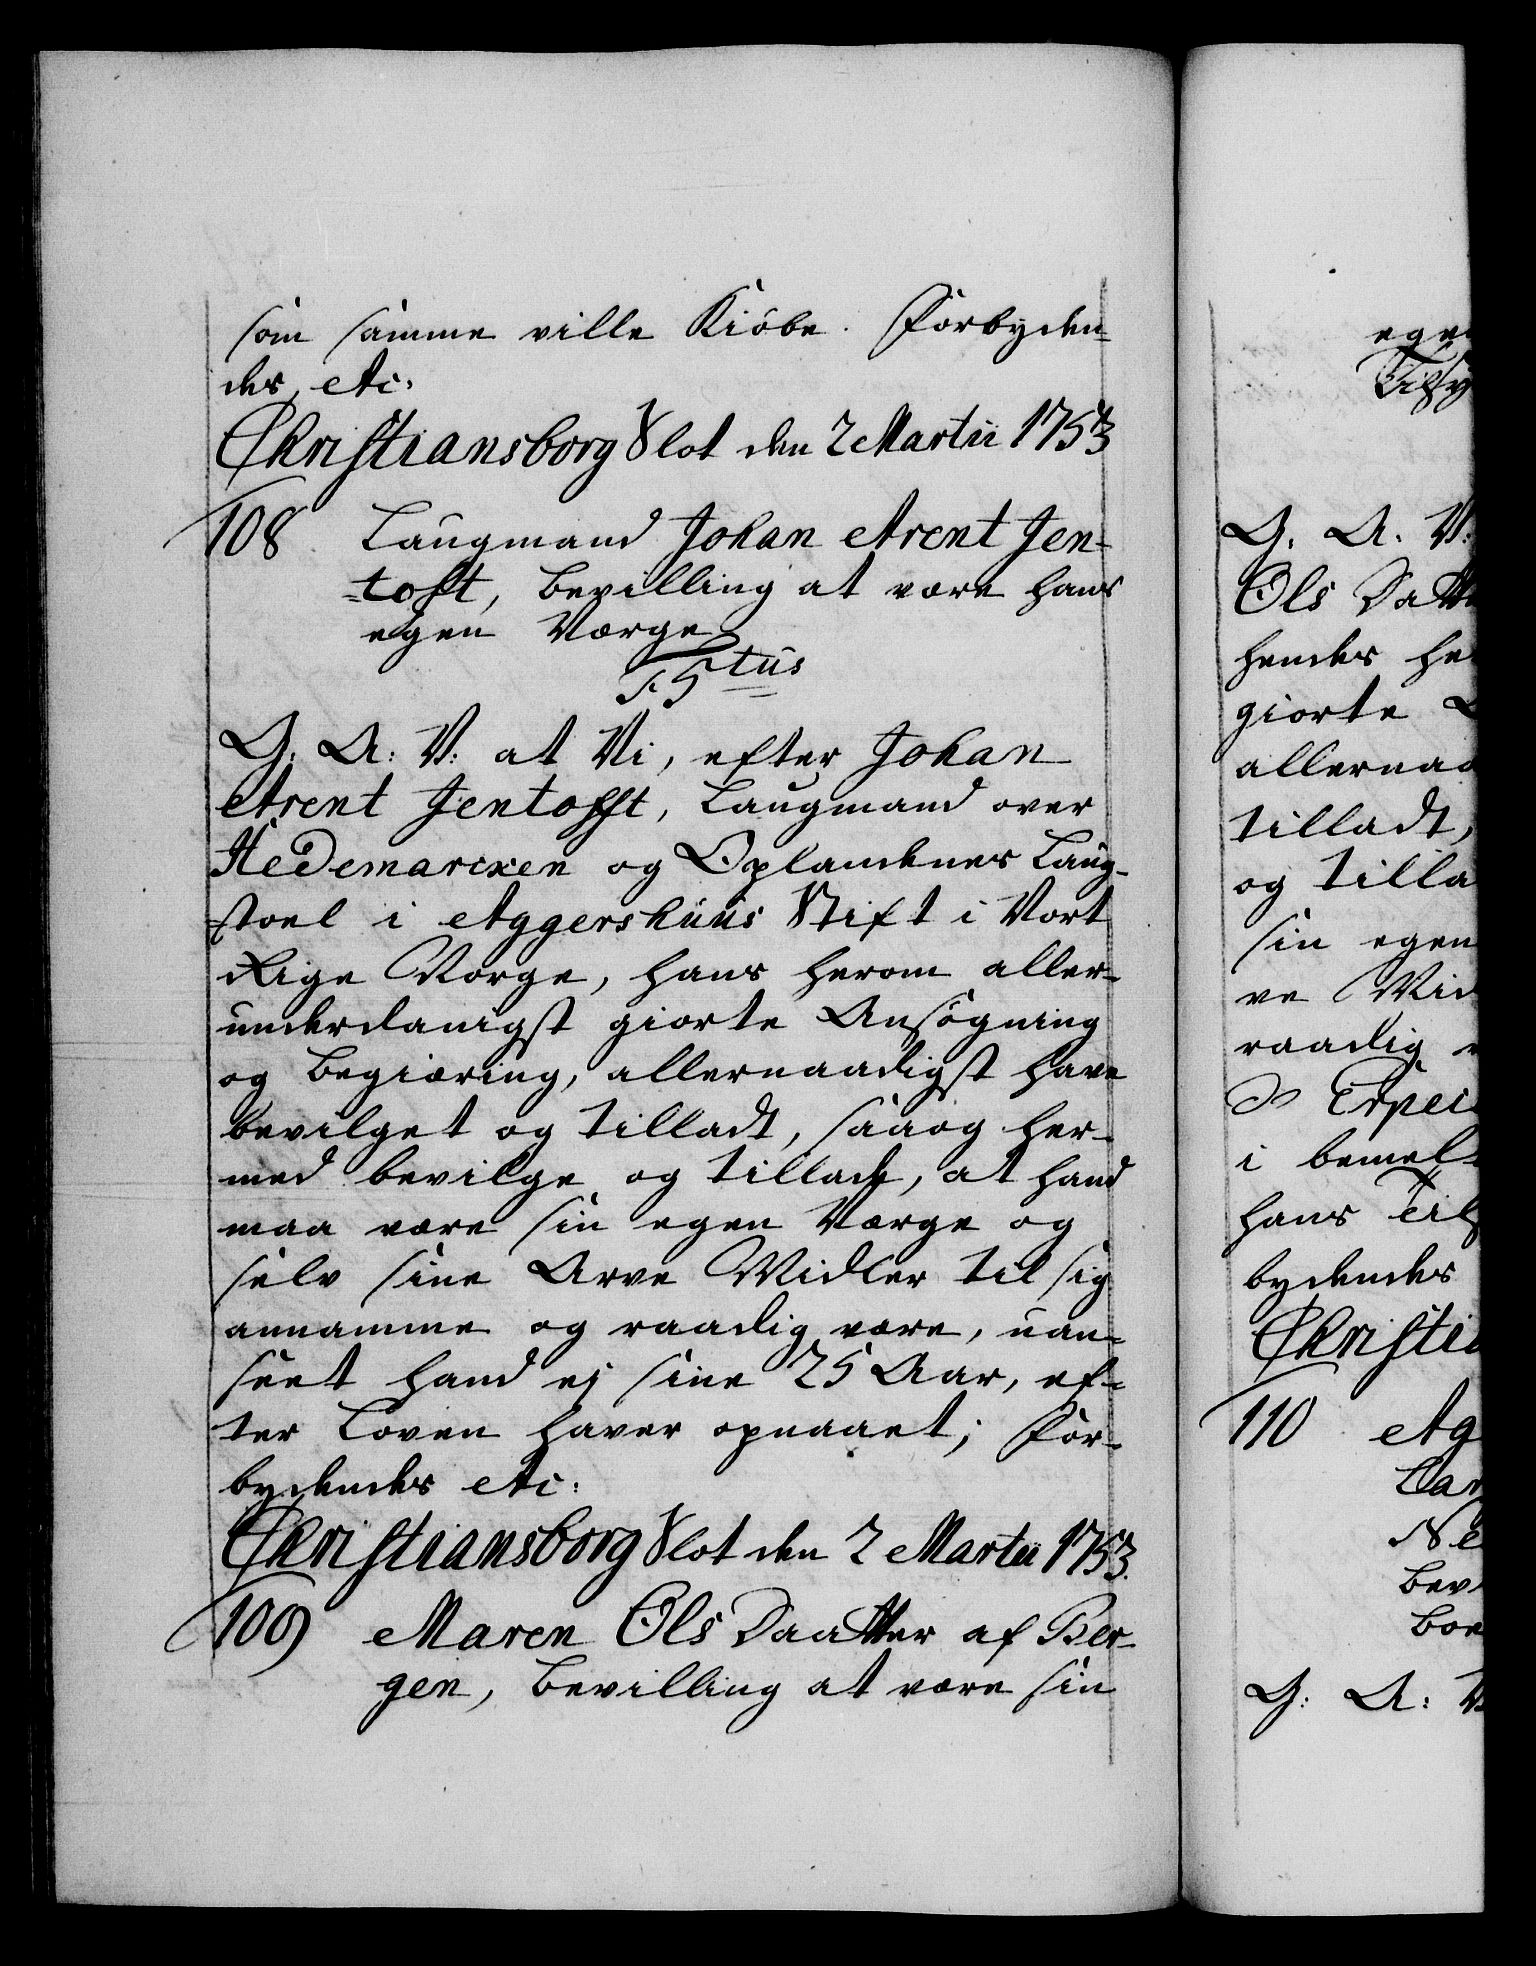 som samme ville Kiöbe. Forbyden-
des etc:
Christiansborg Slot den 2 Martii 1753
108 Laugmand Johan Arent Jen-
=toft, Bevilling at være hans
egen Værge
G. A: V: at Vi, efter Johan
Arent Jentofft, Laugmand over
Hedemarcken og Oplandenes Laug-
stoel i Aggershuus Stift i Vort
Rige Norge, hans herom aller-
underdanigst giorte Ansøgning
og Begiæring, allernaadigst have
bevilget og tilladt, saaog her-
med bevilge og tillade, at hand
maa være sin egen Værge og
selv sine Arve Midler til sig
annamme og raadig være, uan-
seet hand ej sine 25 Aar, ef-
ter Loven haver opnaaet; For-
bydendes etc:
Christiansborg Slot den 2 Martii 1753.
109 Maren Ols Daatter af Ber-
gen, Bevilling at være sin
egen
G. A. V:
Ols Datt
hendes he
giorte
allernaa
tilladt,
og tilla
sin egen
ve Mid
raadig
i bemel
hans Til
bydendes
Christia
110 Ag
Ne
Bev
G: A: V